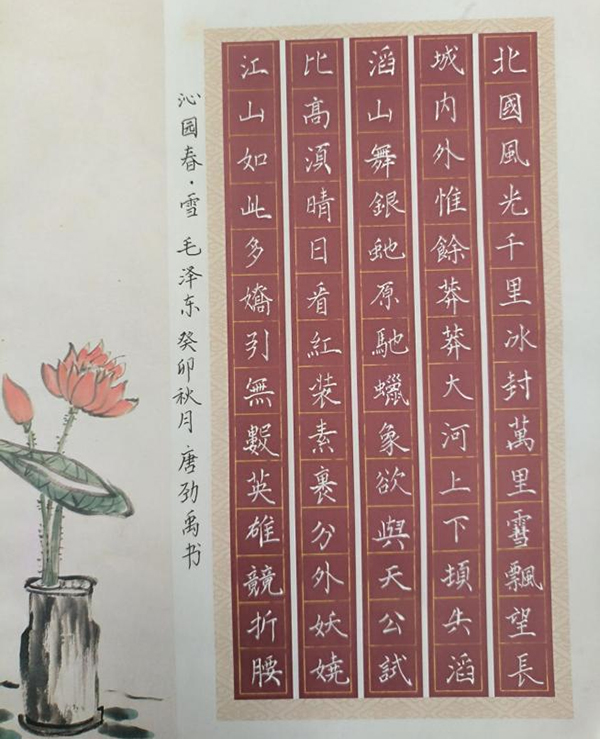 北國風光千里冰封萬里雪飄望長
城内外惟餘莽莽大河上下頓失滔
滔山舞銀虵原馳蠟象欲與天公試
比高湏晴日看紅装素裹分外妖嬈
江山如此多嬌引無數英雄競折腰
沁园春·雪 毛泽东 癸卯秋月 唐劲禹书